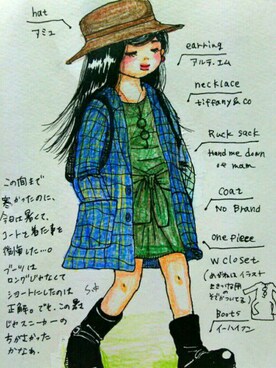 hat
アミュ
earring
アルティエム
necklace
tiffany & co
Ruck sack
Hand me down
of mam
coat
No Brand
one piece
w closet
Boots
イーハイフン
この間まで
寒かったのに、
今日は暑くて、
コートを着た事を
後悔した…。
ブーツは
ロングじゃなくて
ショートにしたのは
正解。でも、この暑
じゃスニーカーの
ちがよかった
かなぁ。